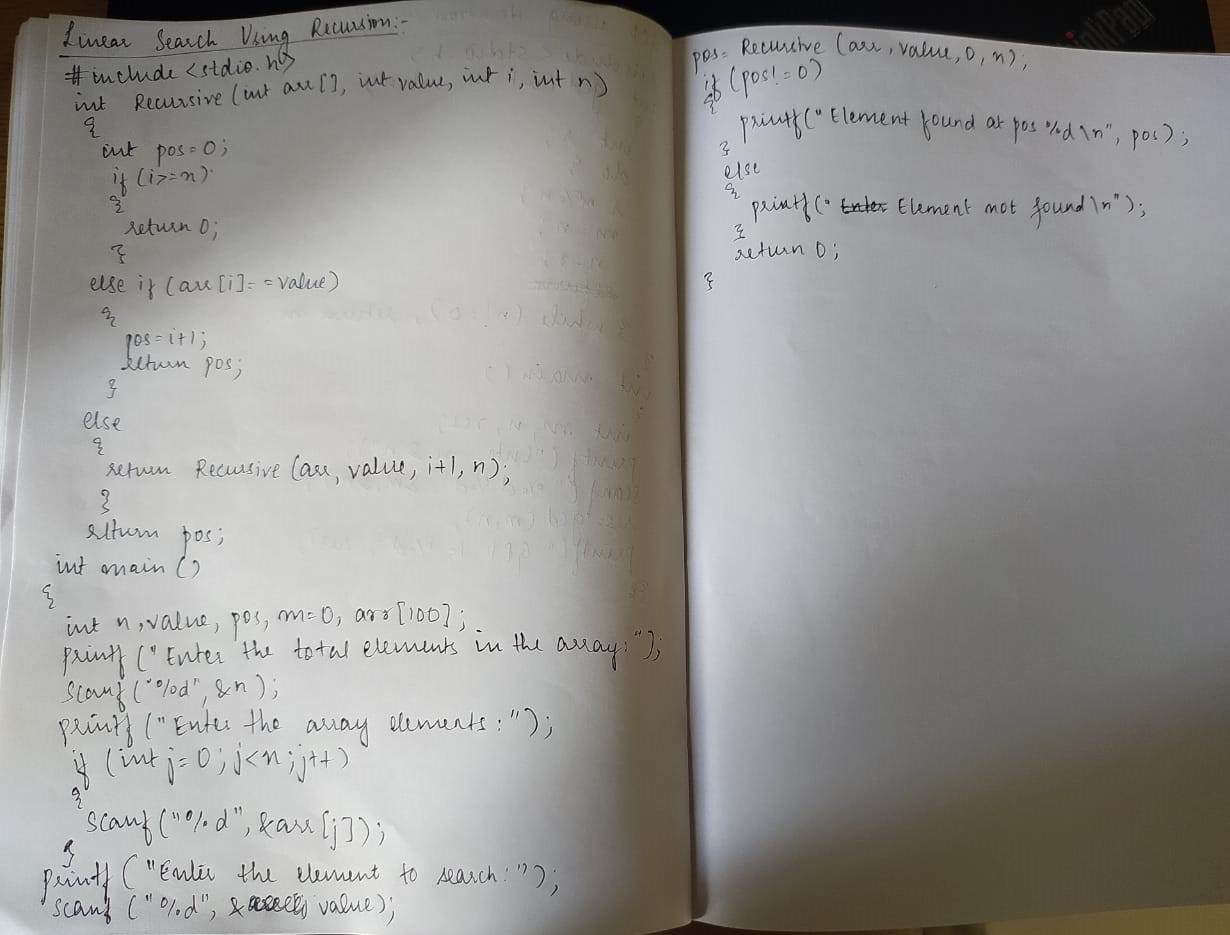 Linear Search Using Recursion:-
#include <stdio.h>
int Recursive (int arr[], int value, int i, int n)
{
int pos=0;
if (i>=n)
{
return 0;
}
else if (arr[i]==value)
{
pos=i+1;
return pos;
}
else
{
return Recursive (arr, value, i+1, n);
}
return pos;
int main ()
{
int n, value, pos, m=0, arr[100];
printf ("Enter the total elements in the array:");
scanf ("%d", &n);
printf ("Enter the array elements:");
if (int j=0; j<n; j++)
{
scanf ("%d", &arr[j]);
}
printf ("Enter the element to search:");
scanf ("%d", & value);
pos= Recursive (arr, value, 0, n);
if (pos!=0)
{
printf("Element found at pos %d\n", pos);
}
else
{
printf(" Enter Element not found\n");
}
return 0;
}